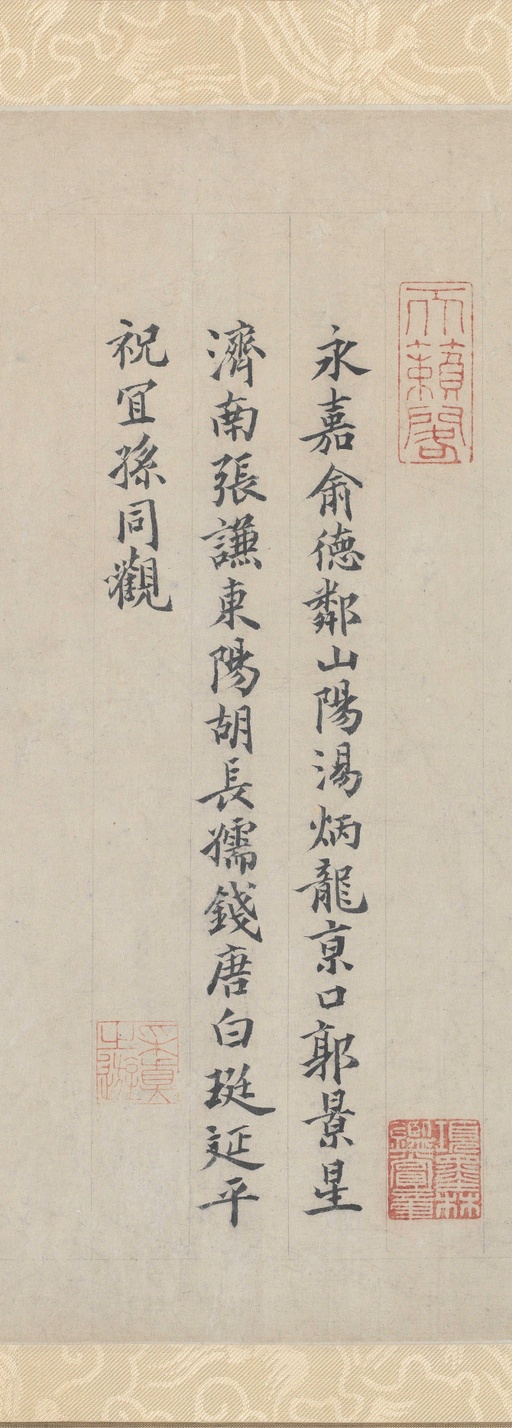 天籟閣
永嘉俞德鄰山陽湯炳龍京口郭景星
濟南張謙東陽胡長孺錢唐白珽延平
祝宜孫同觀
項墨林鑑賞章